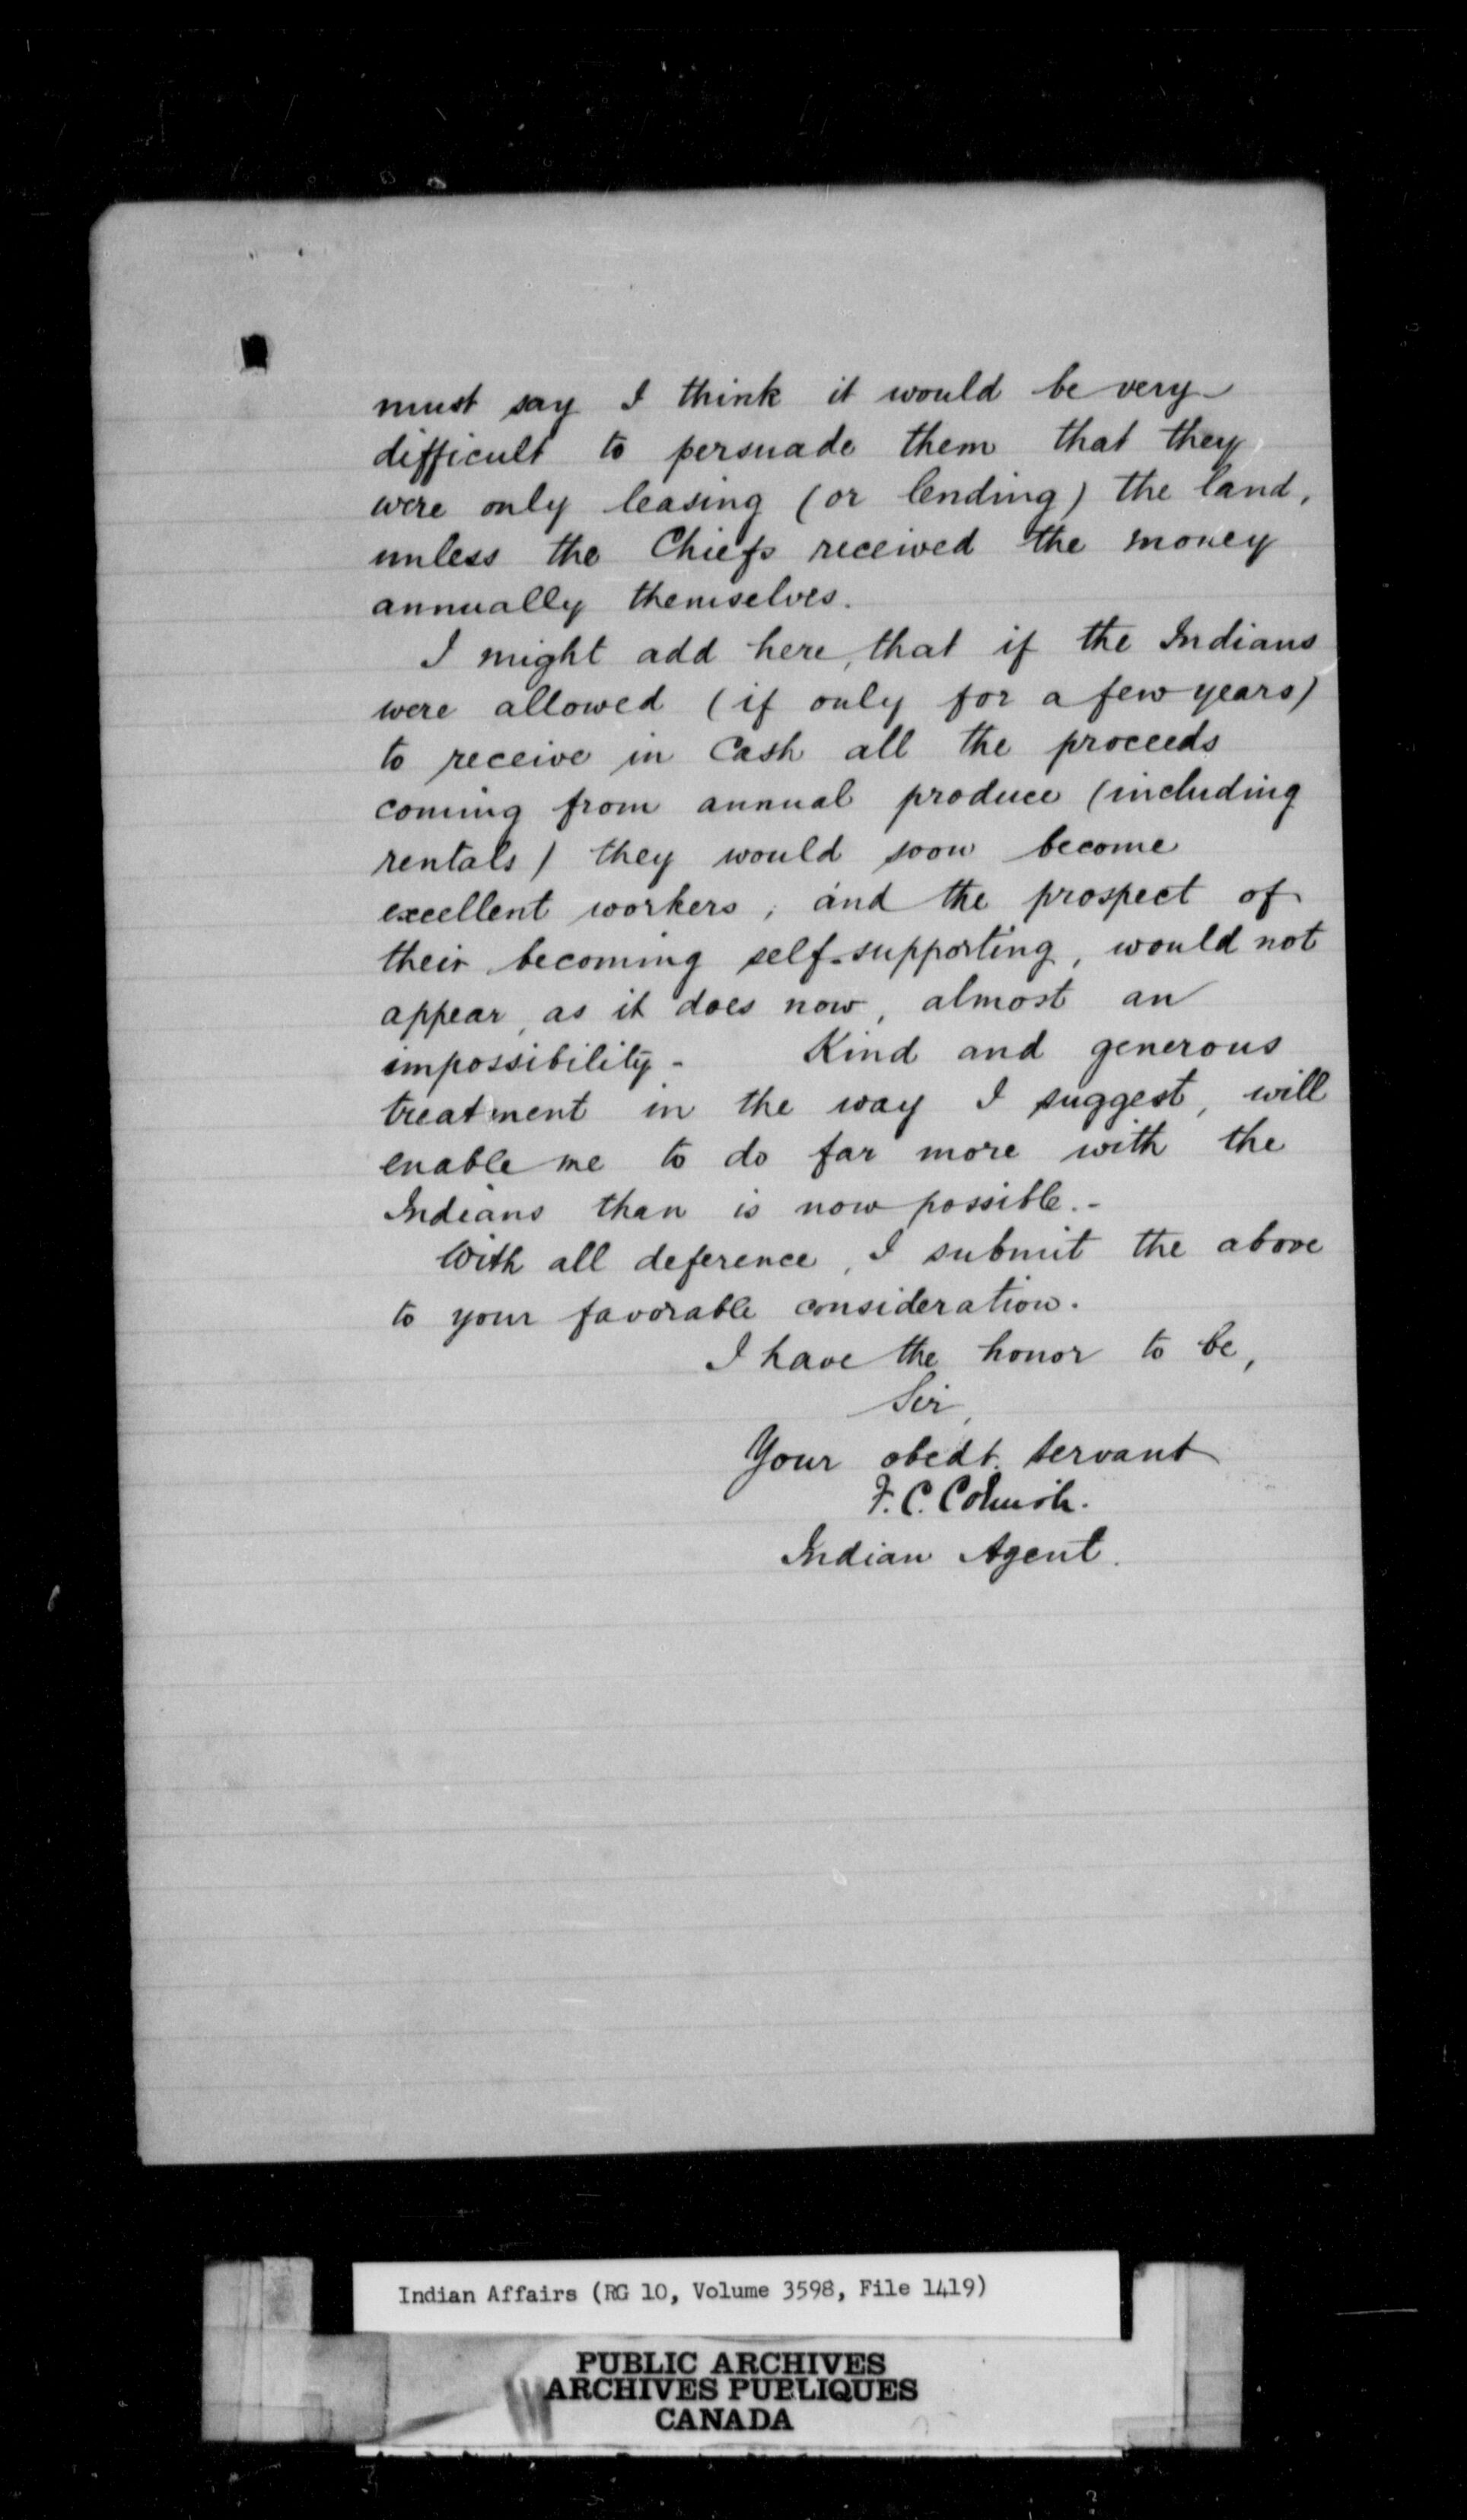 must say I think it would be very
difficult to persuade them that they
were only leasing (or lending) the land,
unless the Chiefs received the money
annually themselves.
I might add here, that if the Indians
were allowed (if only for a few years)
to receive in Cash all the proceeds
coming from annual produce (including
rentals) they would soon become
excellent workers, and the prospect of
their becoming self-supporting, would not
appear, as it does now, almost an
impossibility - Kind and generous
treatment in the way I suggest, will
enable me to do far more with the
Indians than is now possible.-
With all deference, I submit the above
to your favorable consideration.
I have the honor to be,
Sir,
Your obedt. servant
F. C. Cornish.
Indian Agent.
Indian Affairs (RG 10, Volume 3598, File 1419)
PUBLIC ARCHIVES
ARCHIVES PUBLIQUES
CANADA